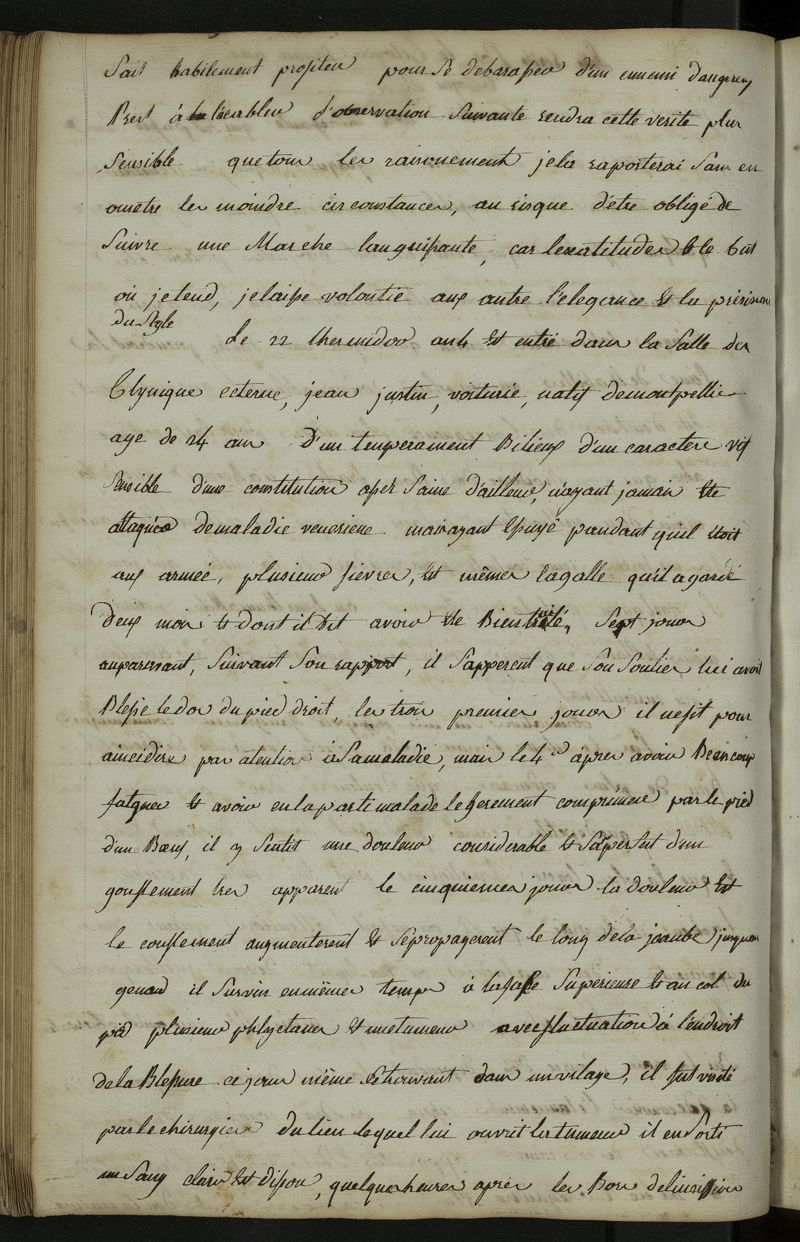 Sait habilement profiter pour Se debarasser d'un ennemi dangereux
Prest á l'observation Suivante rendra cette verité plus
Sensible que tous les raisonement je la raporterai Sans en
ometre les moindre circonstances, au risque d'etre obligé de
Suivre une Marche languissante, car lexatitude est le but
où je tend, je laisse volontié aux autre l'elegance et la présision
du Style Le 22 thermidor an 4 est entré dans la Salle de
Clynique externe, jean justin, voiturié, natif de montpellie
age de 24 ans D'un temperament Bilieux d'un caractere vif
Sensible d'une constitution assés Saine d'ailleur, n'ayant jamais ete
attaquée de maladie veneriene mais ayant Essuyé pandant quil etoit
aux armée, plusieur fievres, et mêmes la galle qu'il a gardé
deux mois et dont il dit avoir ete Bien traité, Sept jours
auparavant, Suivant Son rapport, il S'apperçut que Son Soulier lui avoit
Blessé le dos du pied droit, les trois premier jours il ne fit pour
ainci dire pas atention à Sa maladie, mais le 4e âpres avoir Beaucoup
fatigué et avoir eu la parti malade legerement comprimée par le pied
d'un Bœuf, il y Sentit une douleur considerable et S'apersut d'un
gonflement tres apparent le cinquiemes jours la douleur et
le conflement augmenterent et Se propagerent le long de la jambe jusquau
genou il Survin en mêmes temps à la fasse Superieure et au col du
pié plusieur phlyctanes et une tumeur avec fluctuation à l'endroit
de la Blessure ce jour même Se trouvant dans un vilage, il fut visité
par le chirurgien du lieu lequel lui ouvrit la tumeur il en Sorti
un Sang clair et dissou, quelques heures apres les Bors de linsission